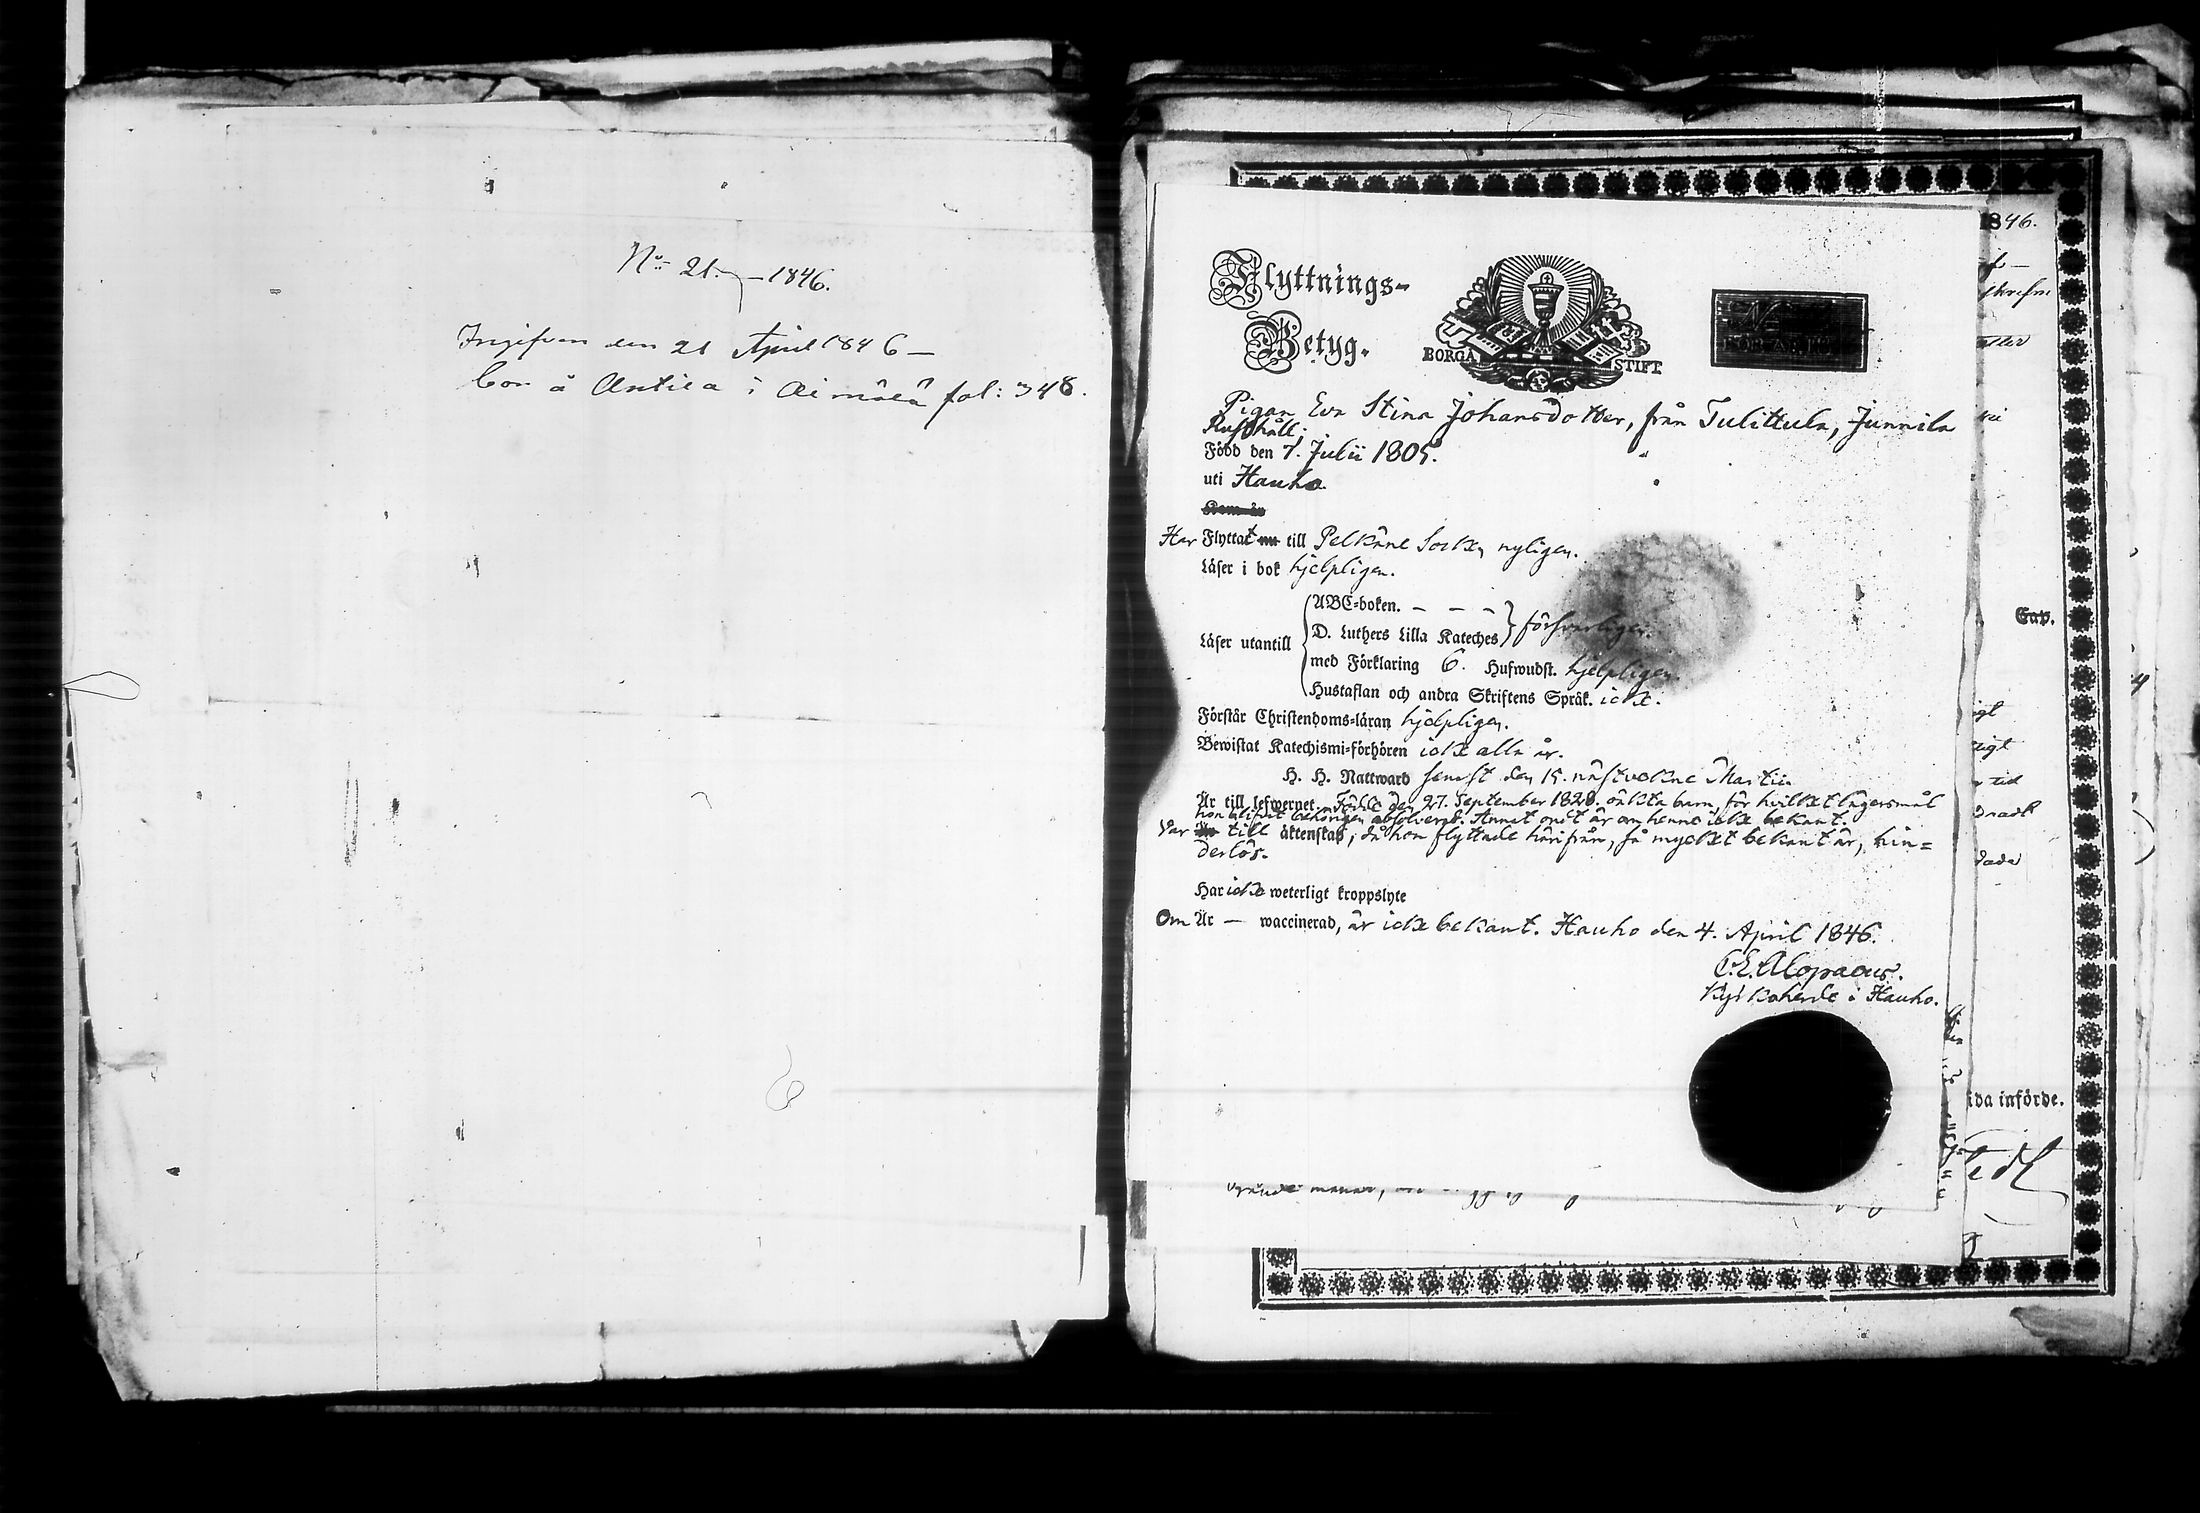 No 21. — 1846.
Ingifven den 21 April 1846 —
bor å Antila i Aimälä fol: 348.
Flyttnings-
Betyg.
BORGÅ STIFT
Pigan Eva Stina Johansdotter, från Tulittula, Junnila
Rusthåll;
Född den 7. Julii 1805.
uti Hauho
Kom år
Har Flyttat till Pelkäne Sockn nyligen.
Läser i bok hjelpligen.
ABC-boken. — — —
Läser utantill D. Luthers Lilla Kateches försvarligen.
med Förklaring 6. Hufwudst. hjelpligen
Hustaflan och andra Skriftens Språk. icke.
Förstår Christendoms-läran hjelpligen.
Bewistat Katechismi-förhören icke alla år.
H. H. Nattward senast den 15. nästvekne Martii.
Är till lefwernet. Födde den 27. September 1828. oäkta barn, för hvilket lägersmål
hon blifvit behörigen absolverad. Annat ondt är om henne icke bekant.
Var till äktenskap, då hon flyttade härifrån, så mycket bekant är, hin=
derlös.
Har icke weterligt kroppslyte
Om Är — waccinerad, är icke bekant. Hauho den 4. April 1846.
C. E. Alopaeus.
Kyrkoherde i Hauho.
1846.
Cap.
ida införde.